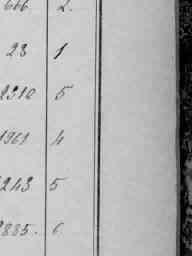 666 2.
23 1
2310 5
1961 4
243 5
2885. 6